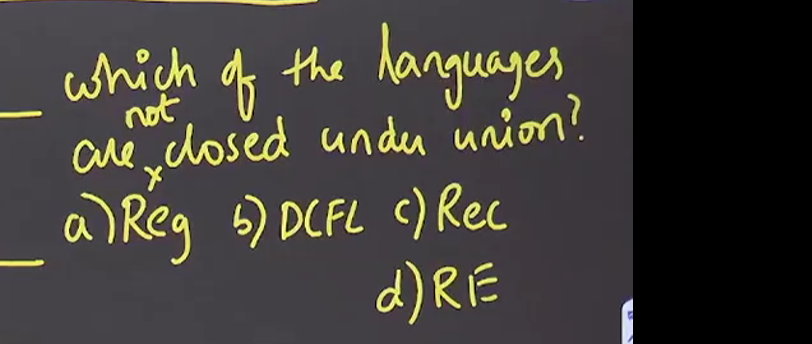 which of the languages
not
are x closed under union?
a) Reg b) DCFL c) Rec
d) RE